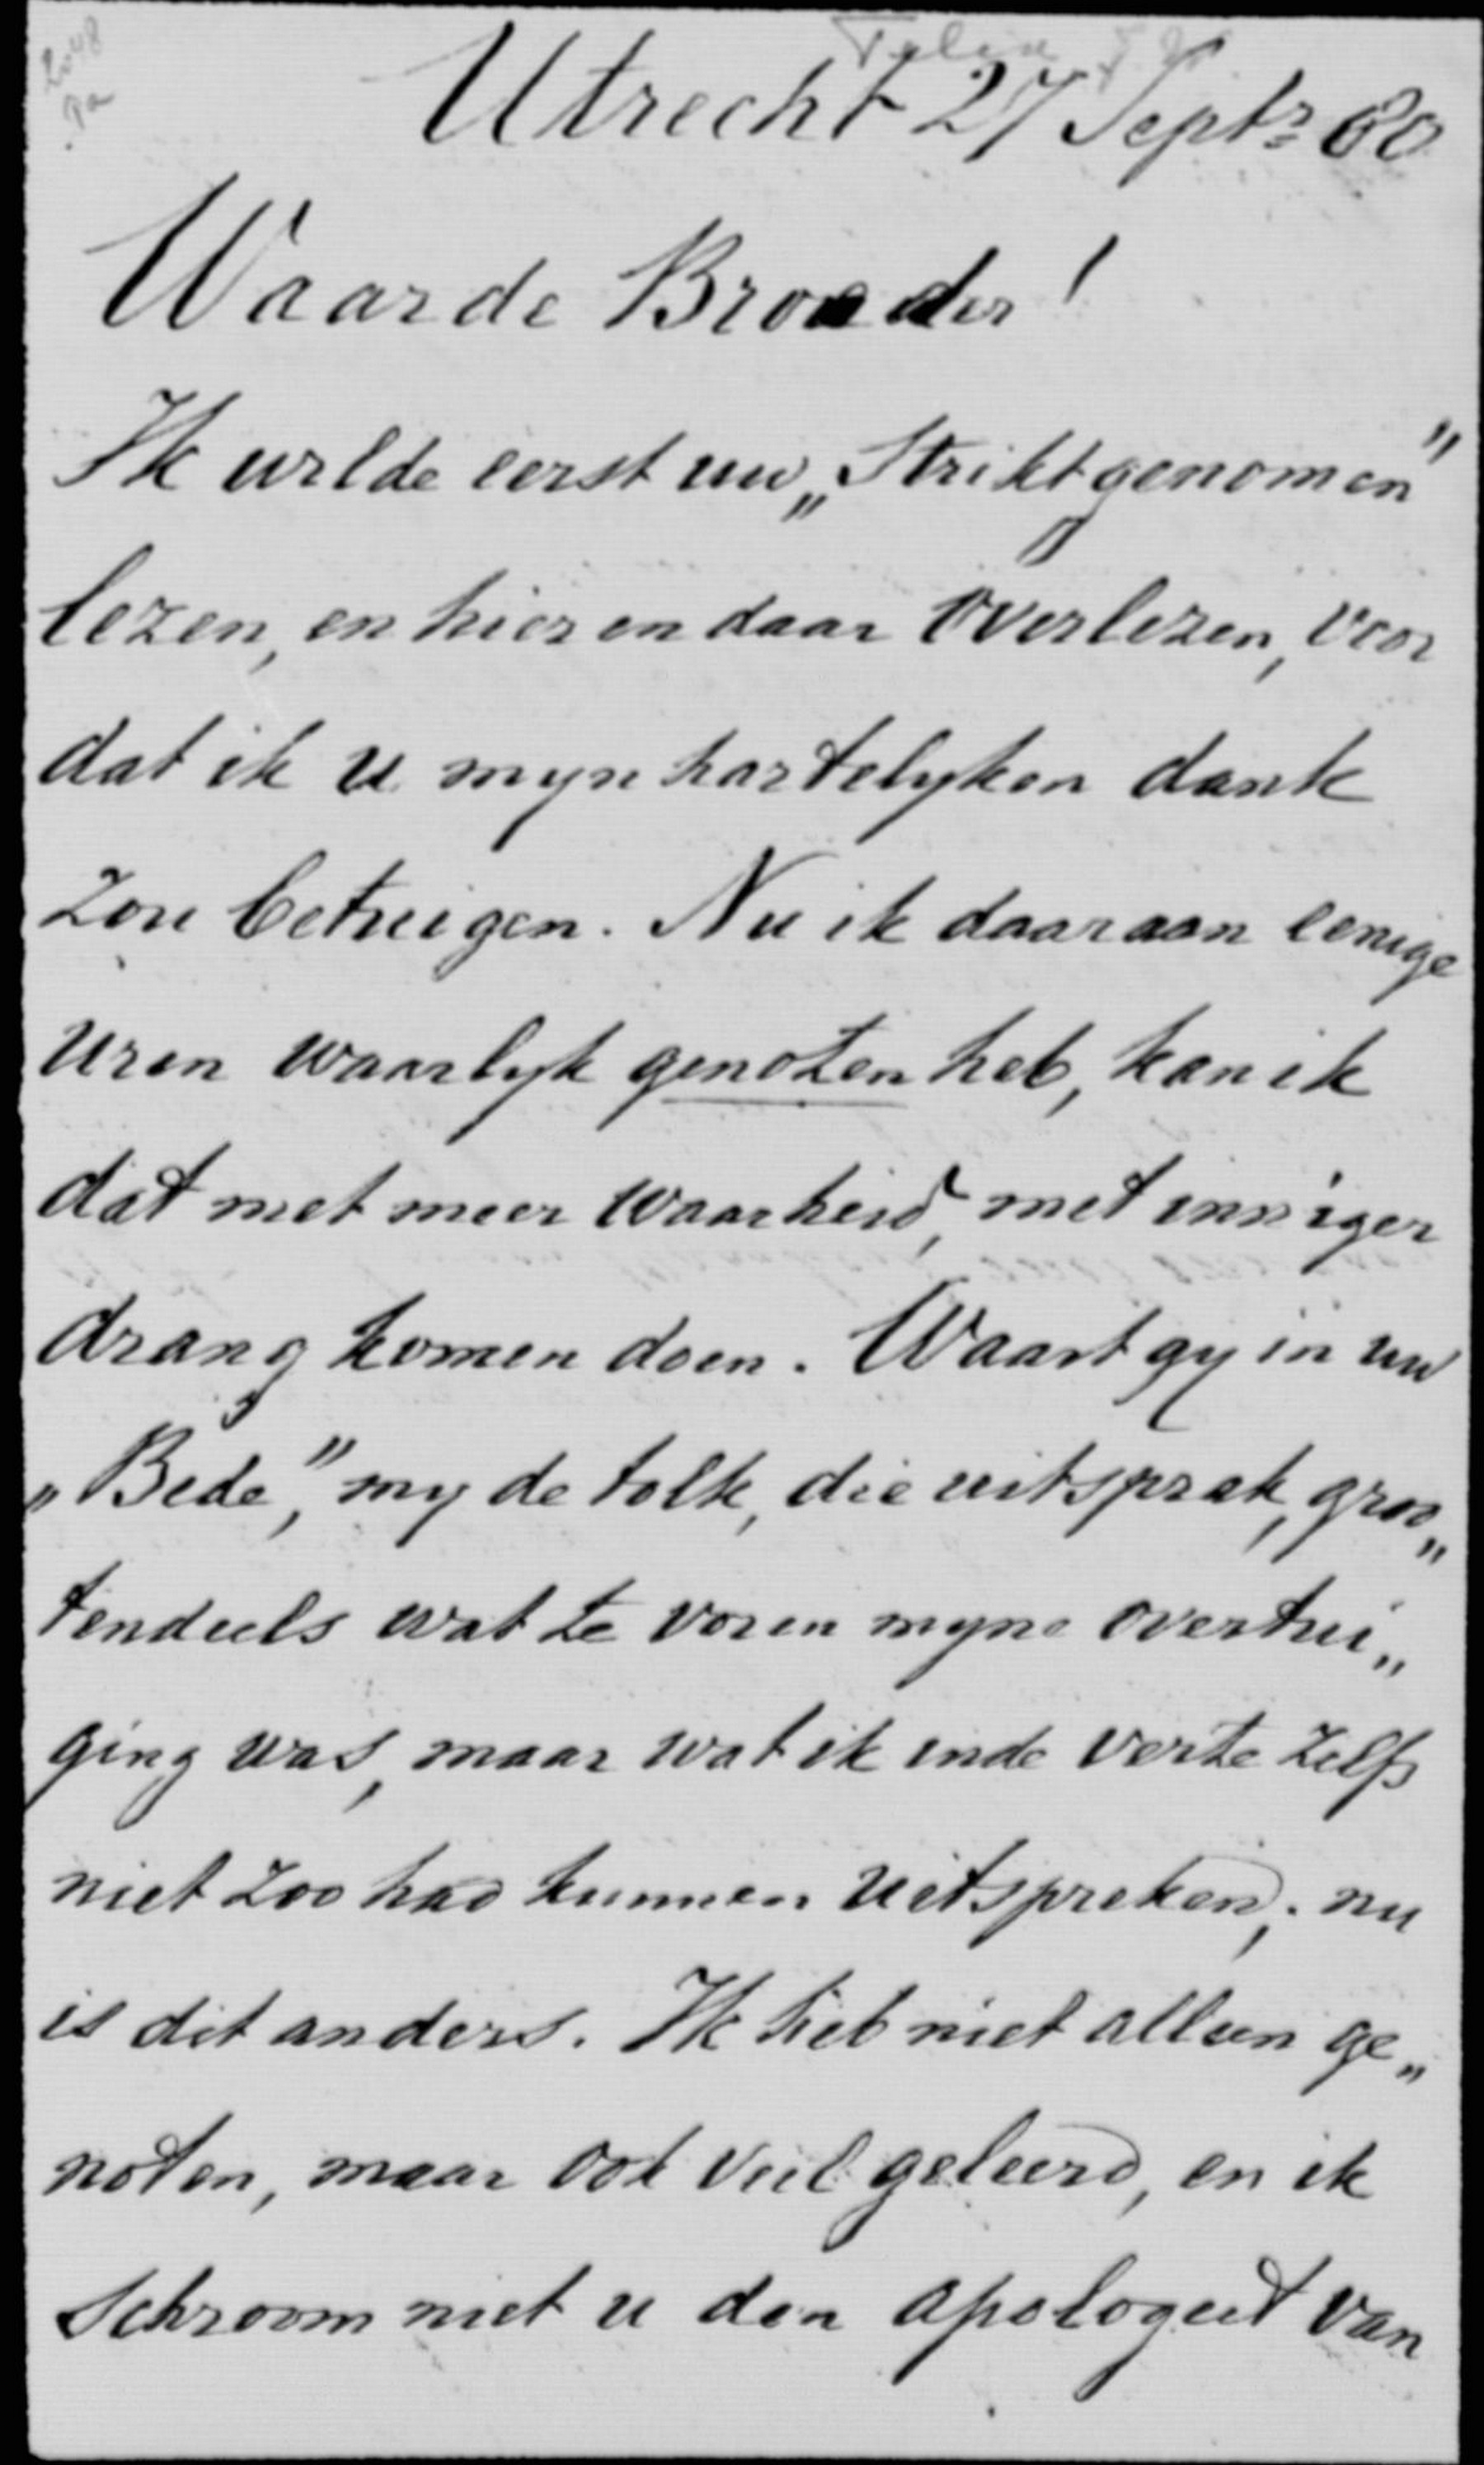 Utrecht 27 Septr 80
Waarde Broeder!
Ik wilde eerst uw „Strikt genomen"
lezen, en hier en daar overlezen, voor
dat ik u myn hartelyken dank
zou betuigen. Nu ik daaraan eenige
uren waarlyk genoten heb, kan ik
dat met meer waarheid, met inniger
drang komen doen. Waart gy in uw
„Bede," my de tolk, die uitsprak, groo„
tendeels wat te voren myne overtui„
ging was, maar wat ik in de verte zelfs
niet zoo had kunnen uitspreken; nu
is dit anders. Ik heb niet alleen ge„
noten, maar ook veel geleerd, en ik
schroom niet u den apologeet van